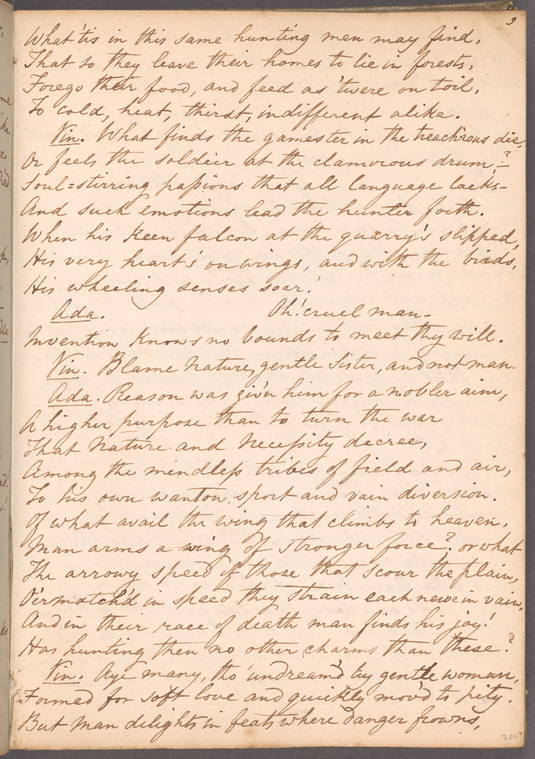 9
What 'tis in this same hunting men may find,
That so they leave their homes to lie in forests,
Forego their food, and feed as 'twere on toil,
To cold, heat, thirst, indifferent alike.
Vin. What finds the gamester in the treach'rous die,
Or feels the soldier at the clamorous drum,?
Soul=stirring passions that all language lacks-
And such emotions lead the hunter forth.
When his keen falcon at the quarry's slipped,
His very heart's on wings, and with the birds,
His wheeling senses soar!
Ada. Oh! cruel man-
Invention knows no bounds to meet thy will.
Vin. Blame Nature, gentle Sister, and not man.
Ada. Reason was giv'n him for a nobler aim,
A higher purpose than to turn the war
That Nature and Necessity decree,
Among the mindless tribes of field and air,
To his own wanton sport and vain diversion.
Of what avail the wing that climbs to heaven,
Man arms a wing of stronger force? or what
The arrowy speed of those that scour the plain,
O'ermatch'd in speed they strain each nerve in vain,
And in their race of death man finds his joy!
Has hunting then no other charms than these?
Vin. Aye many, tho' undream'd by gentle woman,
Formed for soft love and quickly mov'd to pity.
But man delights in feats where danger frowns,